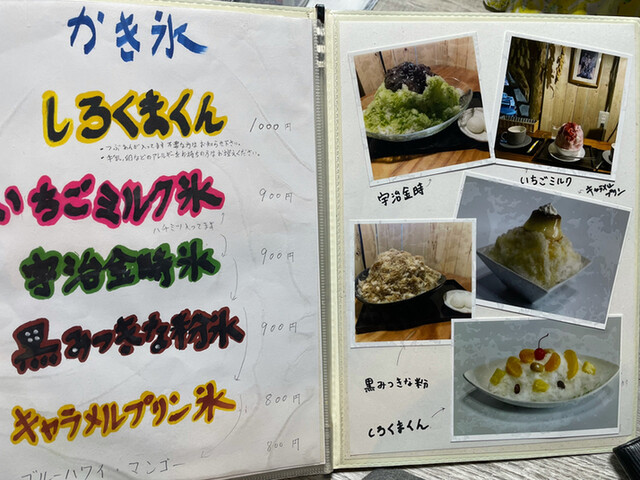 かき氷
しろくまくん 1000円
・つぶあんが入ってます 不要な方はお知らせ下さい。
いちごミルク氷 900円
ハチミツ入ってます
宇治金時氷 900円
黒みつきな粉氷 900円
キャラメルプリン氷 800円
800円
ブルーハワイ・マンゴー
宇治金時
いちごミルク
キャラメルプリン
黒みつきな粉
しろくまくん